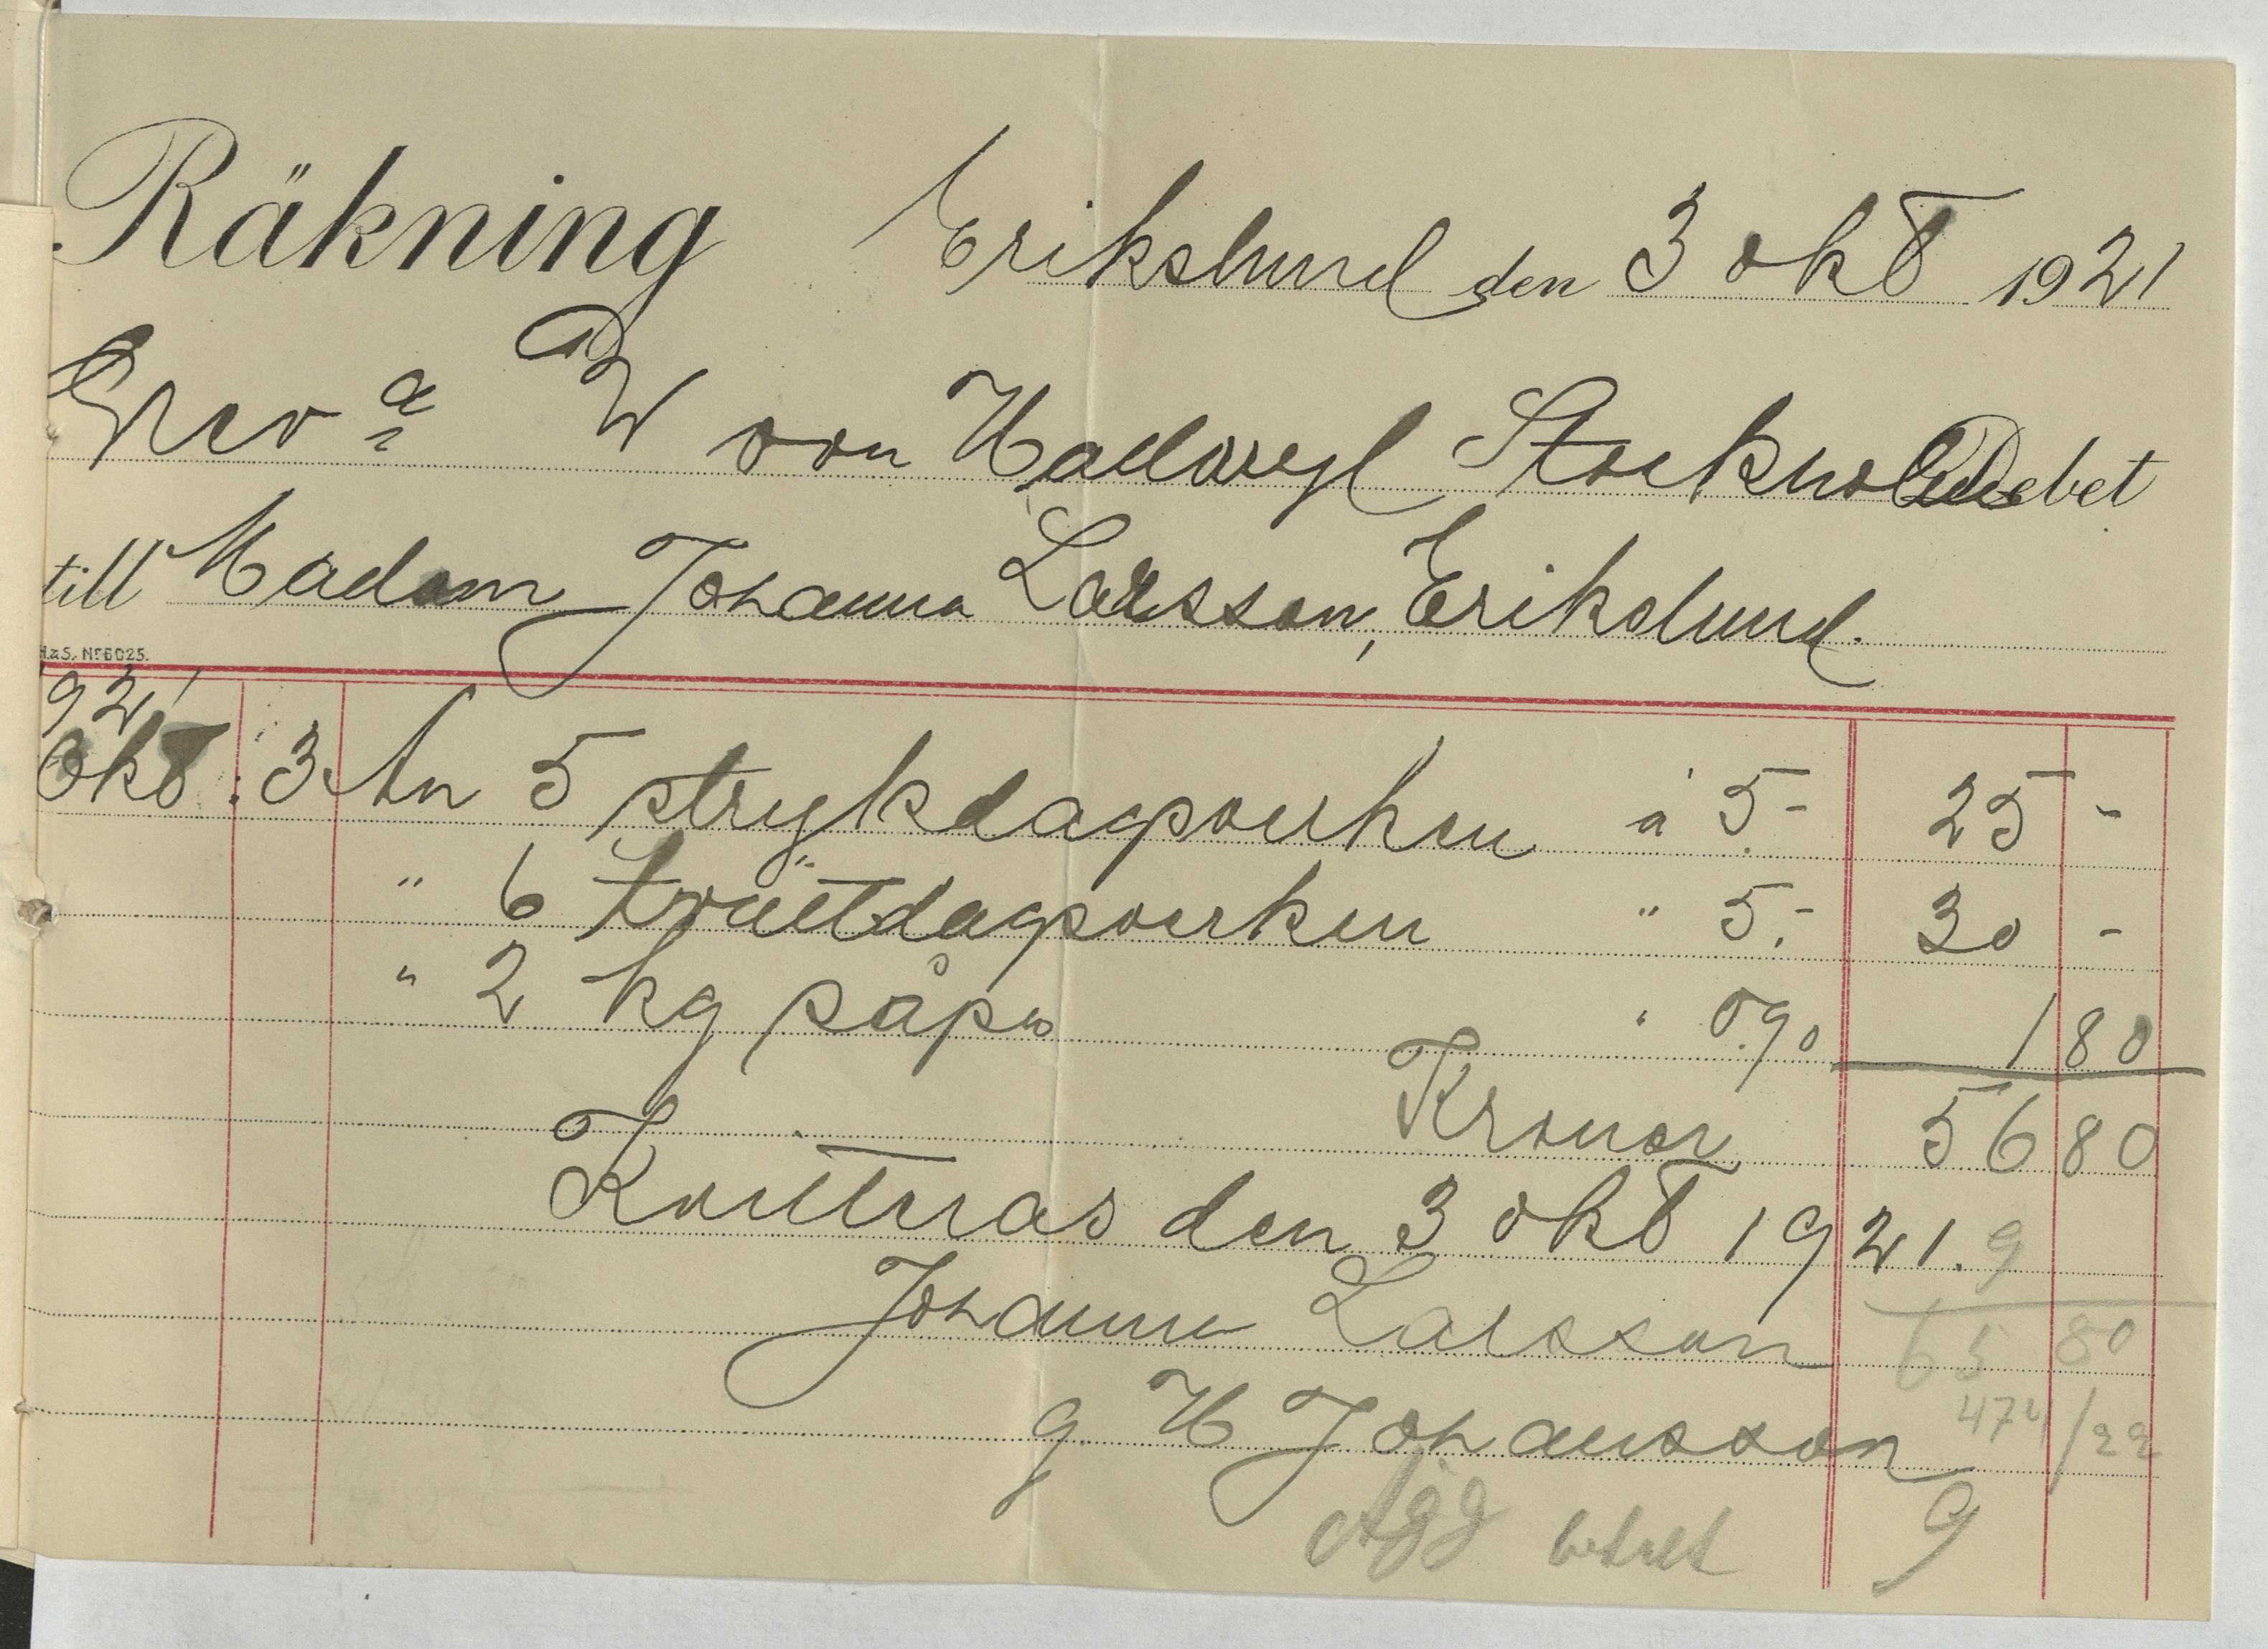 Räkning Erikslund den 3 okt 1921
Grev a W von Hallwyl Stockholm Debet
till Madam Johanna Larsson, Erikslund.
H.&S. No 6025.
921
Okt. 3 An 5 strykdagsverken à 5.- 25 -
" 6 tvättdagsverken " 5.- 30 -
" 2 kg såpa " 0.90 1 80
Kronor 56 80
Kvitteras den 3 okt 1921. 9
Johanna Larsson 65 80
g H Johansson 474/22
Ägg betalt 9